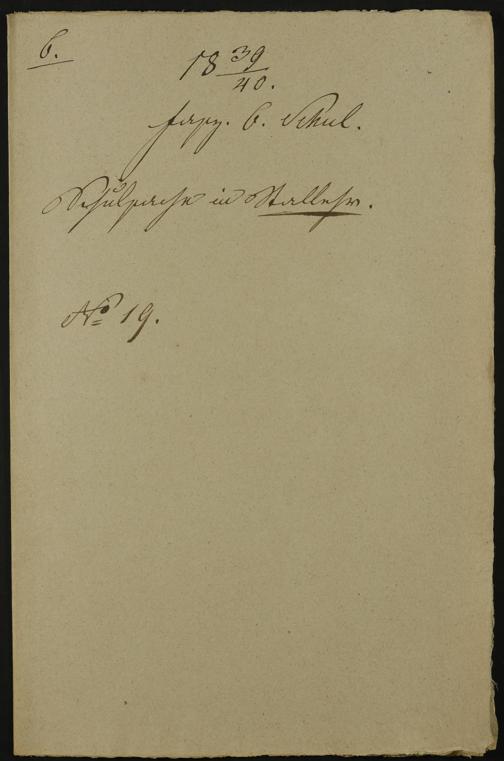 6.
18 39/40.
Fasz. 6. Schul.
Schulsache in Stallehr.
No 19.